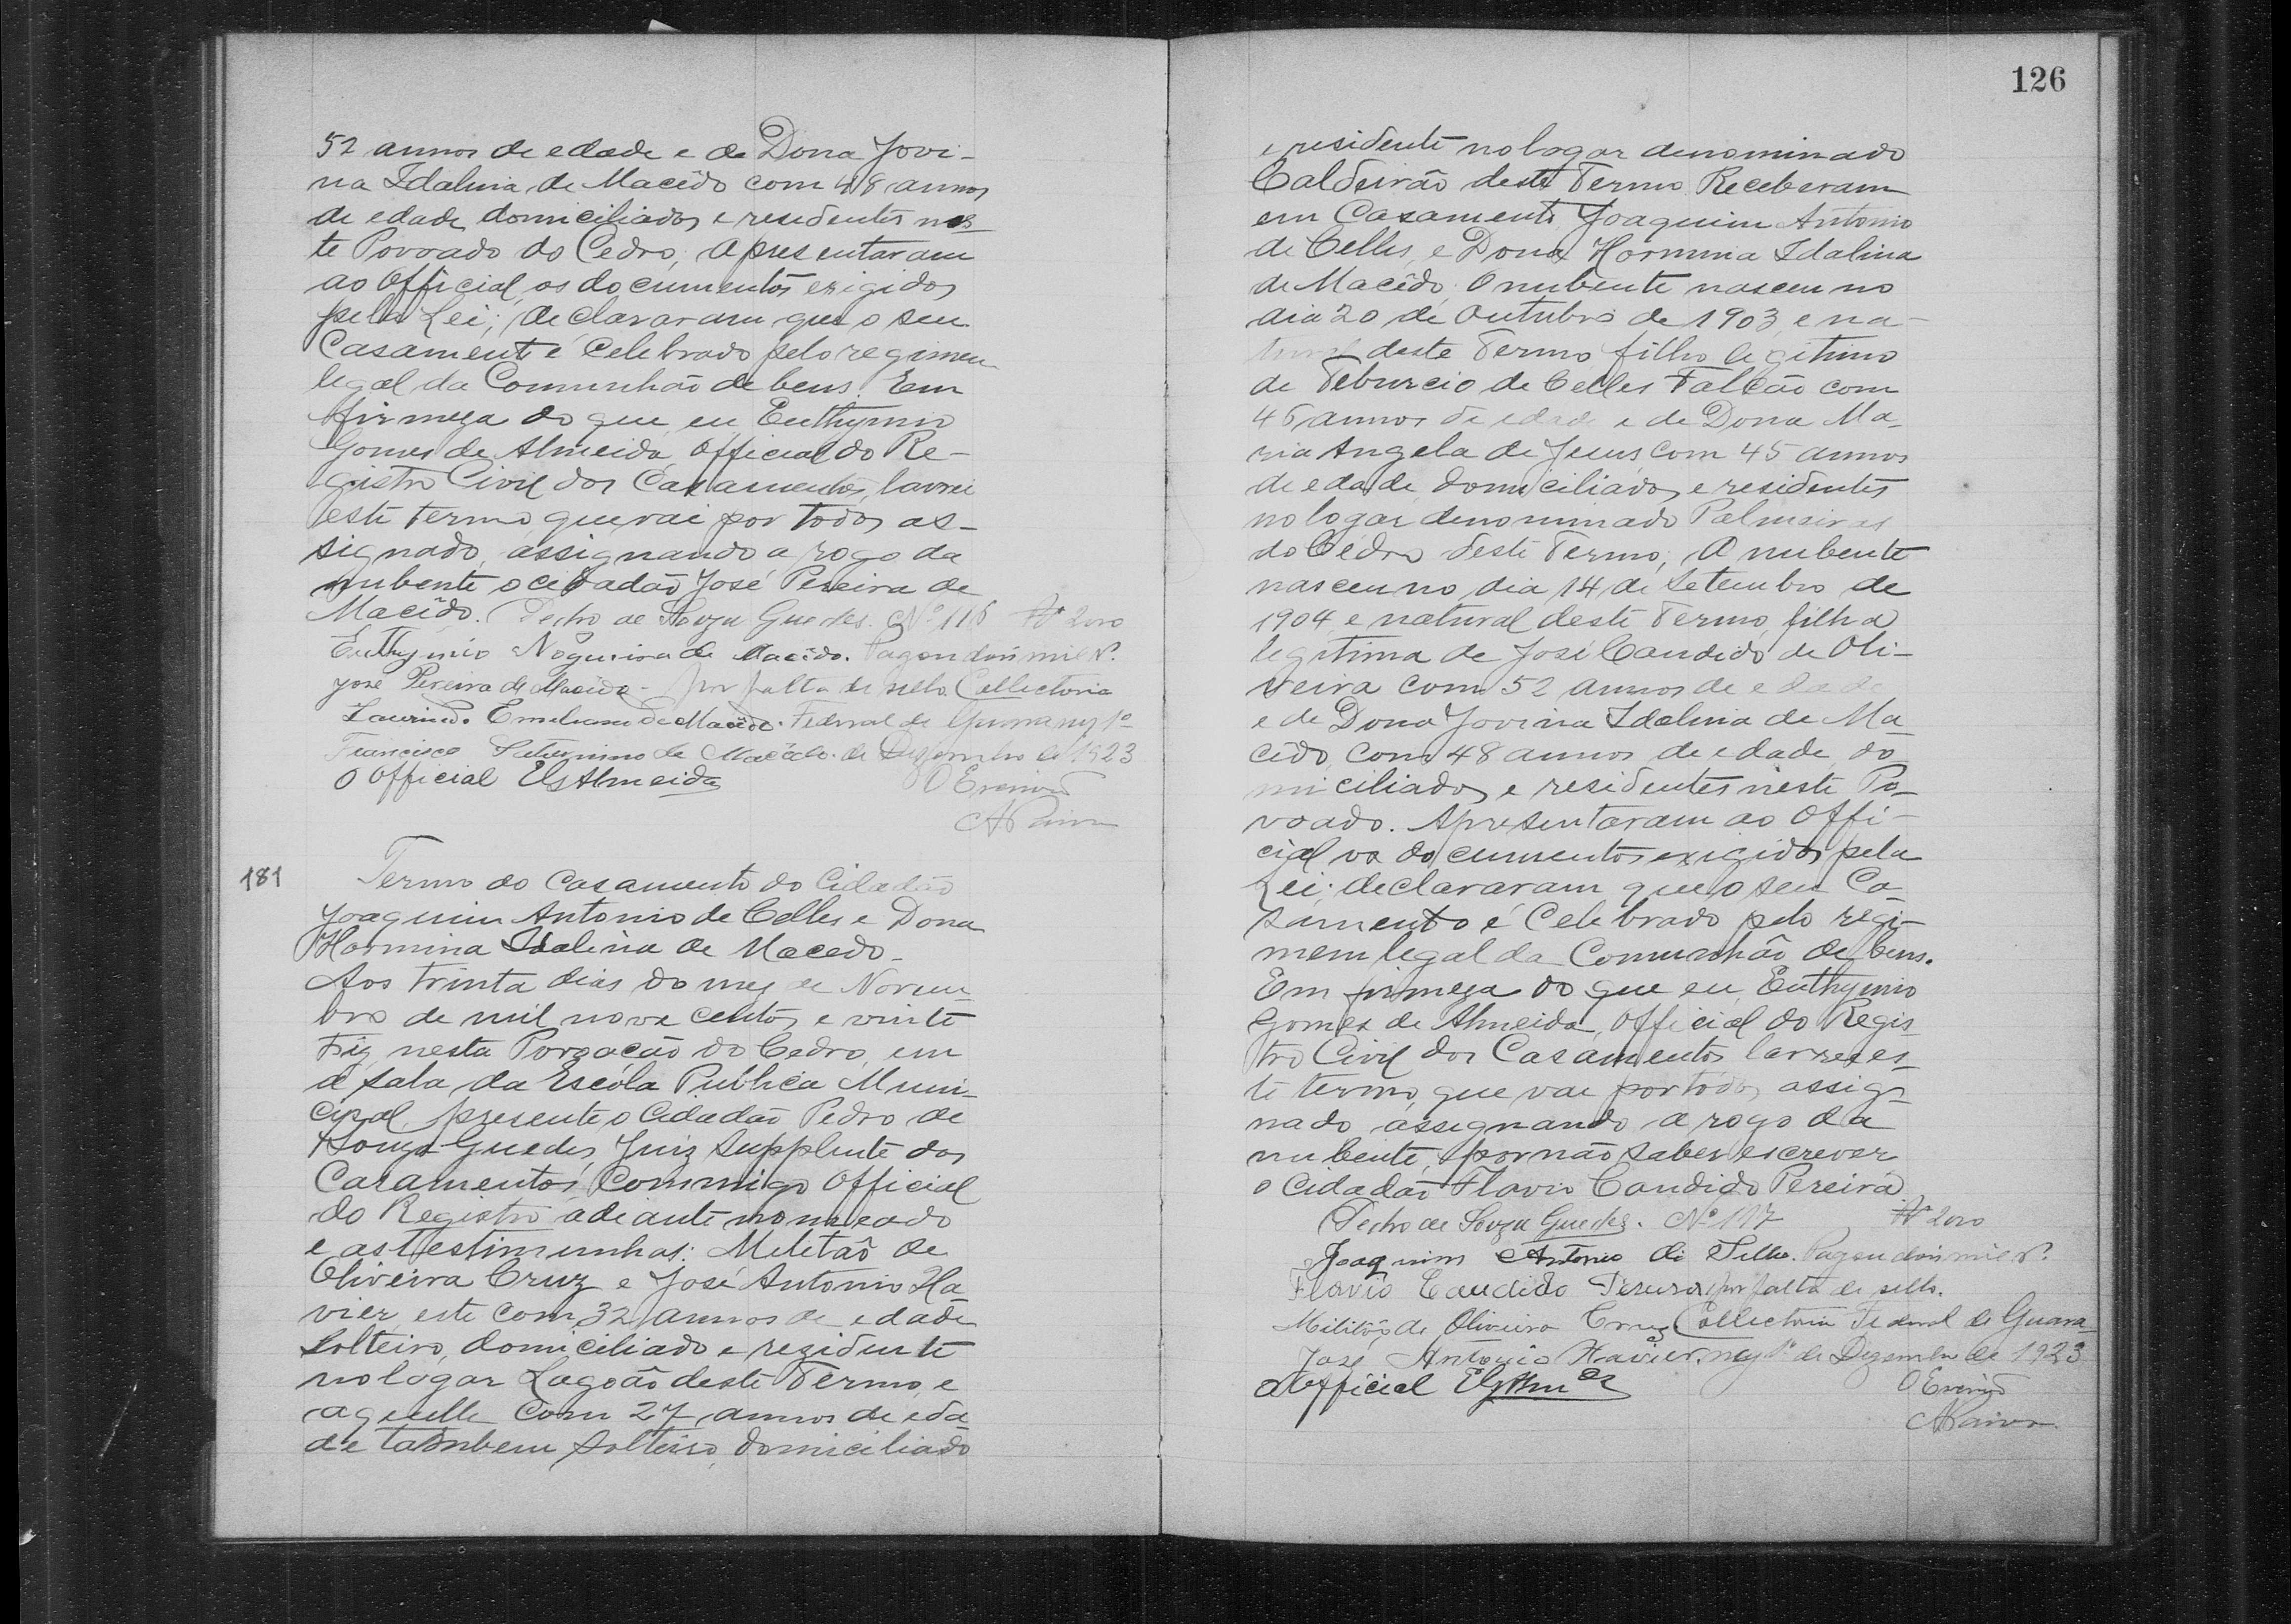 52 annos de edade e de Dona Jovi-
na Idalina de Macêdo com 48 annos
de edade domiciliados e residentes nes
te Povoado do Cedro; apresentaram
ao Official os documentos exigidos
pela Lei; declararam que o seu
Casamento é Celebrado pelo regimen
legal da Comunhão de bens. Em
firmeza do que eu Euthymio
Gomes de Almeida official do Re-
gistro Civil dos Casamentos, lavrei
este termo que vai por todos as-
signado, assignando a rogo da
nubente o cidadão José Pereira de
Macêdo. Pedro de Souza Guedes. Nº 116 2000
Euthymio Nogueira de Macêdo. Pagou dois mil r.
José Pereira de Macêdo - por falta de sello. Collectoria
Laurindo Emiliano de Macêdo. Federal de Guarany 1º
Francisco Saturnino de Macêdo. de Dezembro de 1923
O Official EGAlmeida O Escrivão
APaiva
181 Termo do Casamento do Cidadão
Joaquim Antonio de Celles e Dona
Hormina Idalina de Macedo -
Aos trinta dias do mez de Novem-
bro de mil nove centos e vinte
tris, nesta Povoação do Cedro, em
a sala da Escóla Publica Muni-
cipal, presente o Cidadão Pedro de
Souza Guedes, Juiz Supplente dos
Casamentos, Commigo Official
do Registro adiante nomeado
e as testimunhas: Militão de
Oliveira Cruz e José Antonio Ha-
vier, este com 32 annos de edade
solteiro, domiciliado e rezidente
no logar Lagoão deste Termo, e
aquelle com 27 annos de eda-
de tambem solteiro, domiciliado
126
e residente no logar denominado
Caldeirão deste Termo. Receberam
em Casamento Joaquim Antonio
de Celles, e Dona Hormina Idalina
de Macêdo; O nubente nasceu no
dia 20 de Outubro de 1903, e na-
tural deste Termo filho legitimo
de Teburcio de Celles Falcão com
46 annos de edade e de Dona Ma-
ria Angela de Jesus, com 45 annos
de edade, domiciliados e residentes
no logar denominado Palmeiras
do Cédro deste Termo; A nubente
nasceu no dia 14 de Setembro de
1904, e natural deste Termo, filha
legitima de José Candido de Oli-
veira com 52 annos de edade
e de Dona Jovina Idalina de Ma-
cêdo, com 48 annos de edade, do
miciliados e residentes neste Po-
voado. Apresentaram ao Offi-
cial os documentos exigidos pela
Lei; declararam que o seu Ca-
samento é Celebrado pelo regi-
mem legal da Comunhão de bens.
Em firmeza do que eu, Euthymio
Gomes de Almeida, Official do Regis
tro Civil dos Casamentos lavrei es-
te termo, que vae por todos assig-
nado assignando a rogo da
nubente, por não saber escrever,
o Cidadão Flavio Candido Pereira
Pedro de Souza Guedes. Nº 117 2000
Joaquim Antonio di Selles. Pagou dois mil r.
Flavio Candido Pereira, por falta de sello.
Militão de Oliveira Cruz Collectoria Federal de Guara-
José Antonio Havier. ny 1º de Dezembro de 1923
O Official EGAlmda O Escrivão
APaiva